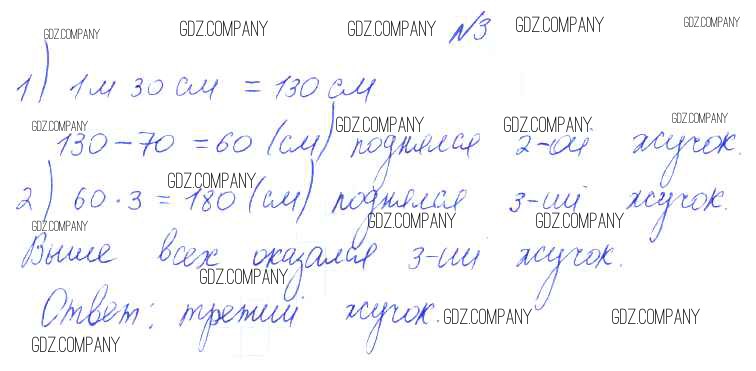 GDZ.COMPANY GDZ.COMPANY GDZ.COMPANY №3 GDZ.COMPANY GDZ.COMPANY
1) 1 м 30 см = 130 см
GDZ.COMPANY GDZ.COMPANY GDZ.COMPANY GDZ.COMPANY
130 - 70 = 60 (см) поднялся 2-ой жучок.
GDZ.COMPANY
2) 60 · 3 = 180 (см) поднялся 3-ий жучок.
GDZ.COMPANY GDZ.COMPANY GDZ.COMPANY
Выше всех оказался 3-ий жучок.
GDZ.COMPANY
Ответ: третий жучок.
GDZ.COMPANY GDZ.COMPANY
GDZ.COMPANY